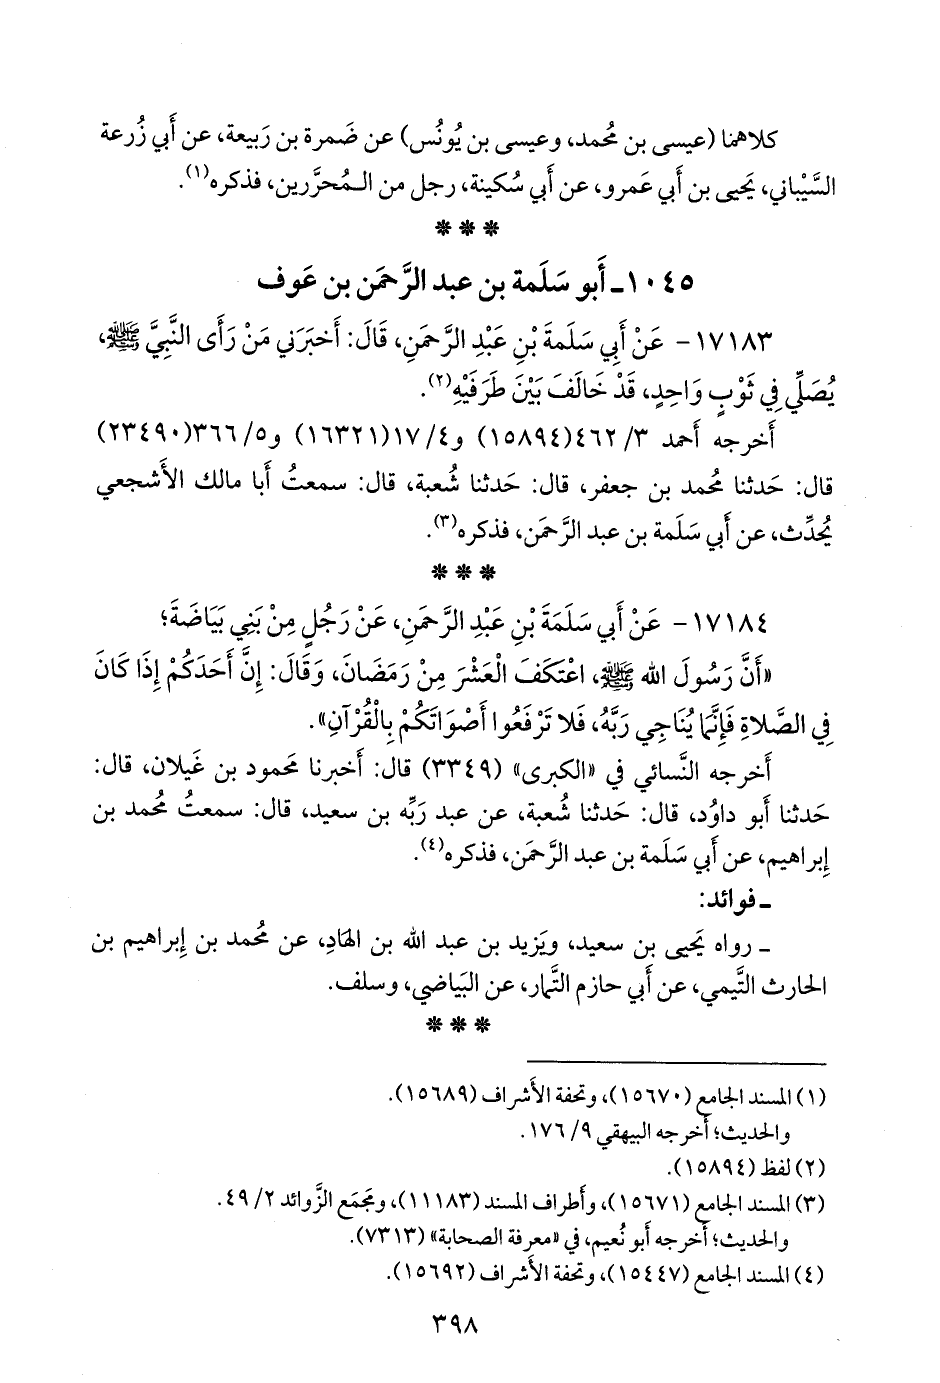 كلاهما (عيسى بن مُحمد، وعيسى بن يُونُس) عن ضَمرة بن رَبيعة، عن أَبي زُرعة
السَّيْباني، يَحيى بن أَبي عَمرو، عن أَبي سُكينة، رجل من المُحرَّرين، فذكره(١).
***
١٠٤٥ـ أَبو سَلَمة بن عبد الرَّحمَن بن عَوف
١٧١٨٣- عَنْ أَبِي سَلَمَةَ بْنِ عَبْدِ الرَّحمَنِ، قَالَ: أَخبَرَنِي مَنْ رَأَى النَّبِيَّ ﷺ،
يُصَلِّي فِي ثَوْبٍ وَاحِدٍ، قَدْ خَالَفَ بَيْنَ طَرَفَيْهِ(٢).
أَخرجه أَحمد ٣/ ٤٦٢(١٥٨٩٤) و٤/ ١٧(١٦٣٢١) و٥/ ٣٦٦(٢٣٤٩٠)
قال: حَدثنا مُحمد بن جعفر، قال: حَدثنا شُعبة، قال: سمعتُ أَبا مالك الأَشجعي
يُحدِّث، عن أَبي سَلَمة بن عبد الرَّحمَن، فذكره(٣).
***
١٧١٨٤- عَنْ أَبِي سَلَمَةَ بْنِ عَبْدِ الرَّحمَنِ، عَنْ رَجُلٍ مِنْ بَنِي بَيَاضَةَ؛
«أَنَّ رَسُولَ الله ﷺ، اعْتكَفَ الْعَشْرَ مِنْ رَمَضَانَ، وَقَالَ: إِنَّ أَحَدَكُمْ إِذَا كَانَ
فِي الصَّلاةِ فَإِنَّمَا يُنَاجِي رَبَّهُ، فَلا تَرْفَعُوا أَصْوَاتَكُمْ بِالْقُرْآنِ».
أَخرجه النَّسائي في «الكبرى» (٣٣٤٩) قال: أَخبرنا مَحمود بن غَيلان، قال:
حَدثنا أَبو داوُد، قال: حَدثنا شُعبة، عن عبد رَبِّه بن سعيد، قال: سمعتُ مُحمد بن
إِبراهيم، عن أَبي سَلَمة بن عبد الرَّحمَن، فذكره(٤).
ـ فوائد:
ـ رواه يَحيى بن سعيد، ويَزيد بن عبد الله بن الهَادِ، عن مُحمد بن إِبراهيم بن
الحَارث التَّيمي، عن أَبي حازم التَّمار، عن البَياضي، وسلف.
***
(١) المسند الجامع (١٥٦٧٠)، وتحفة الأَشراف (١٥٦٨٩).
والحديث؛ أَخرجه البيهقي ٩/ ١٧٦.
(٢) لفظ (١٥٨٩٤).
(٣) المسند الجامع (١٥٦٧١)، وأَطراف المسند (١١١٨٣)، ومَجمَع الزَّوائد ٢/ ٤٩.
والحديث؛ أَخرجه أَبو نُعيم، في «معرفة الصحابة» (٧٣١٣).
(٤) المسند الجامع (١٥٤٤٧)، وتحفة الأَشراف (١٥٦٩٢).
٣٩٨